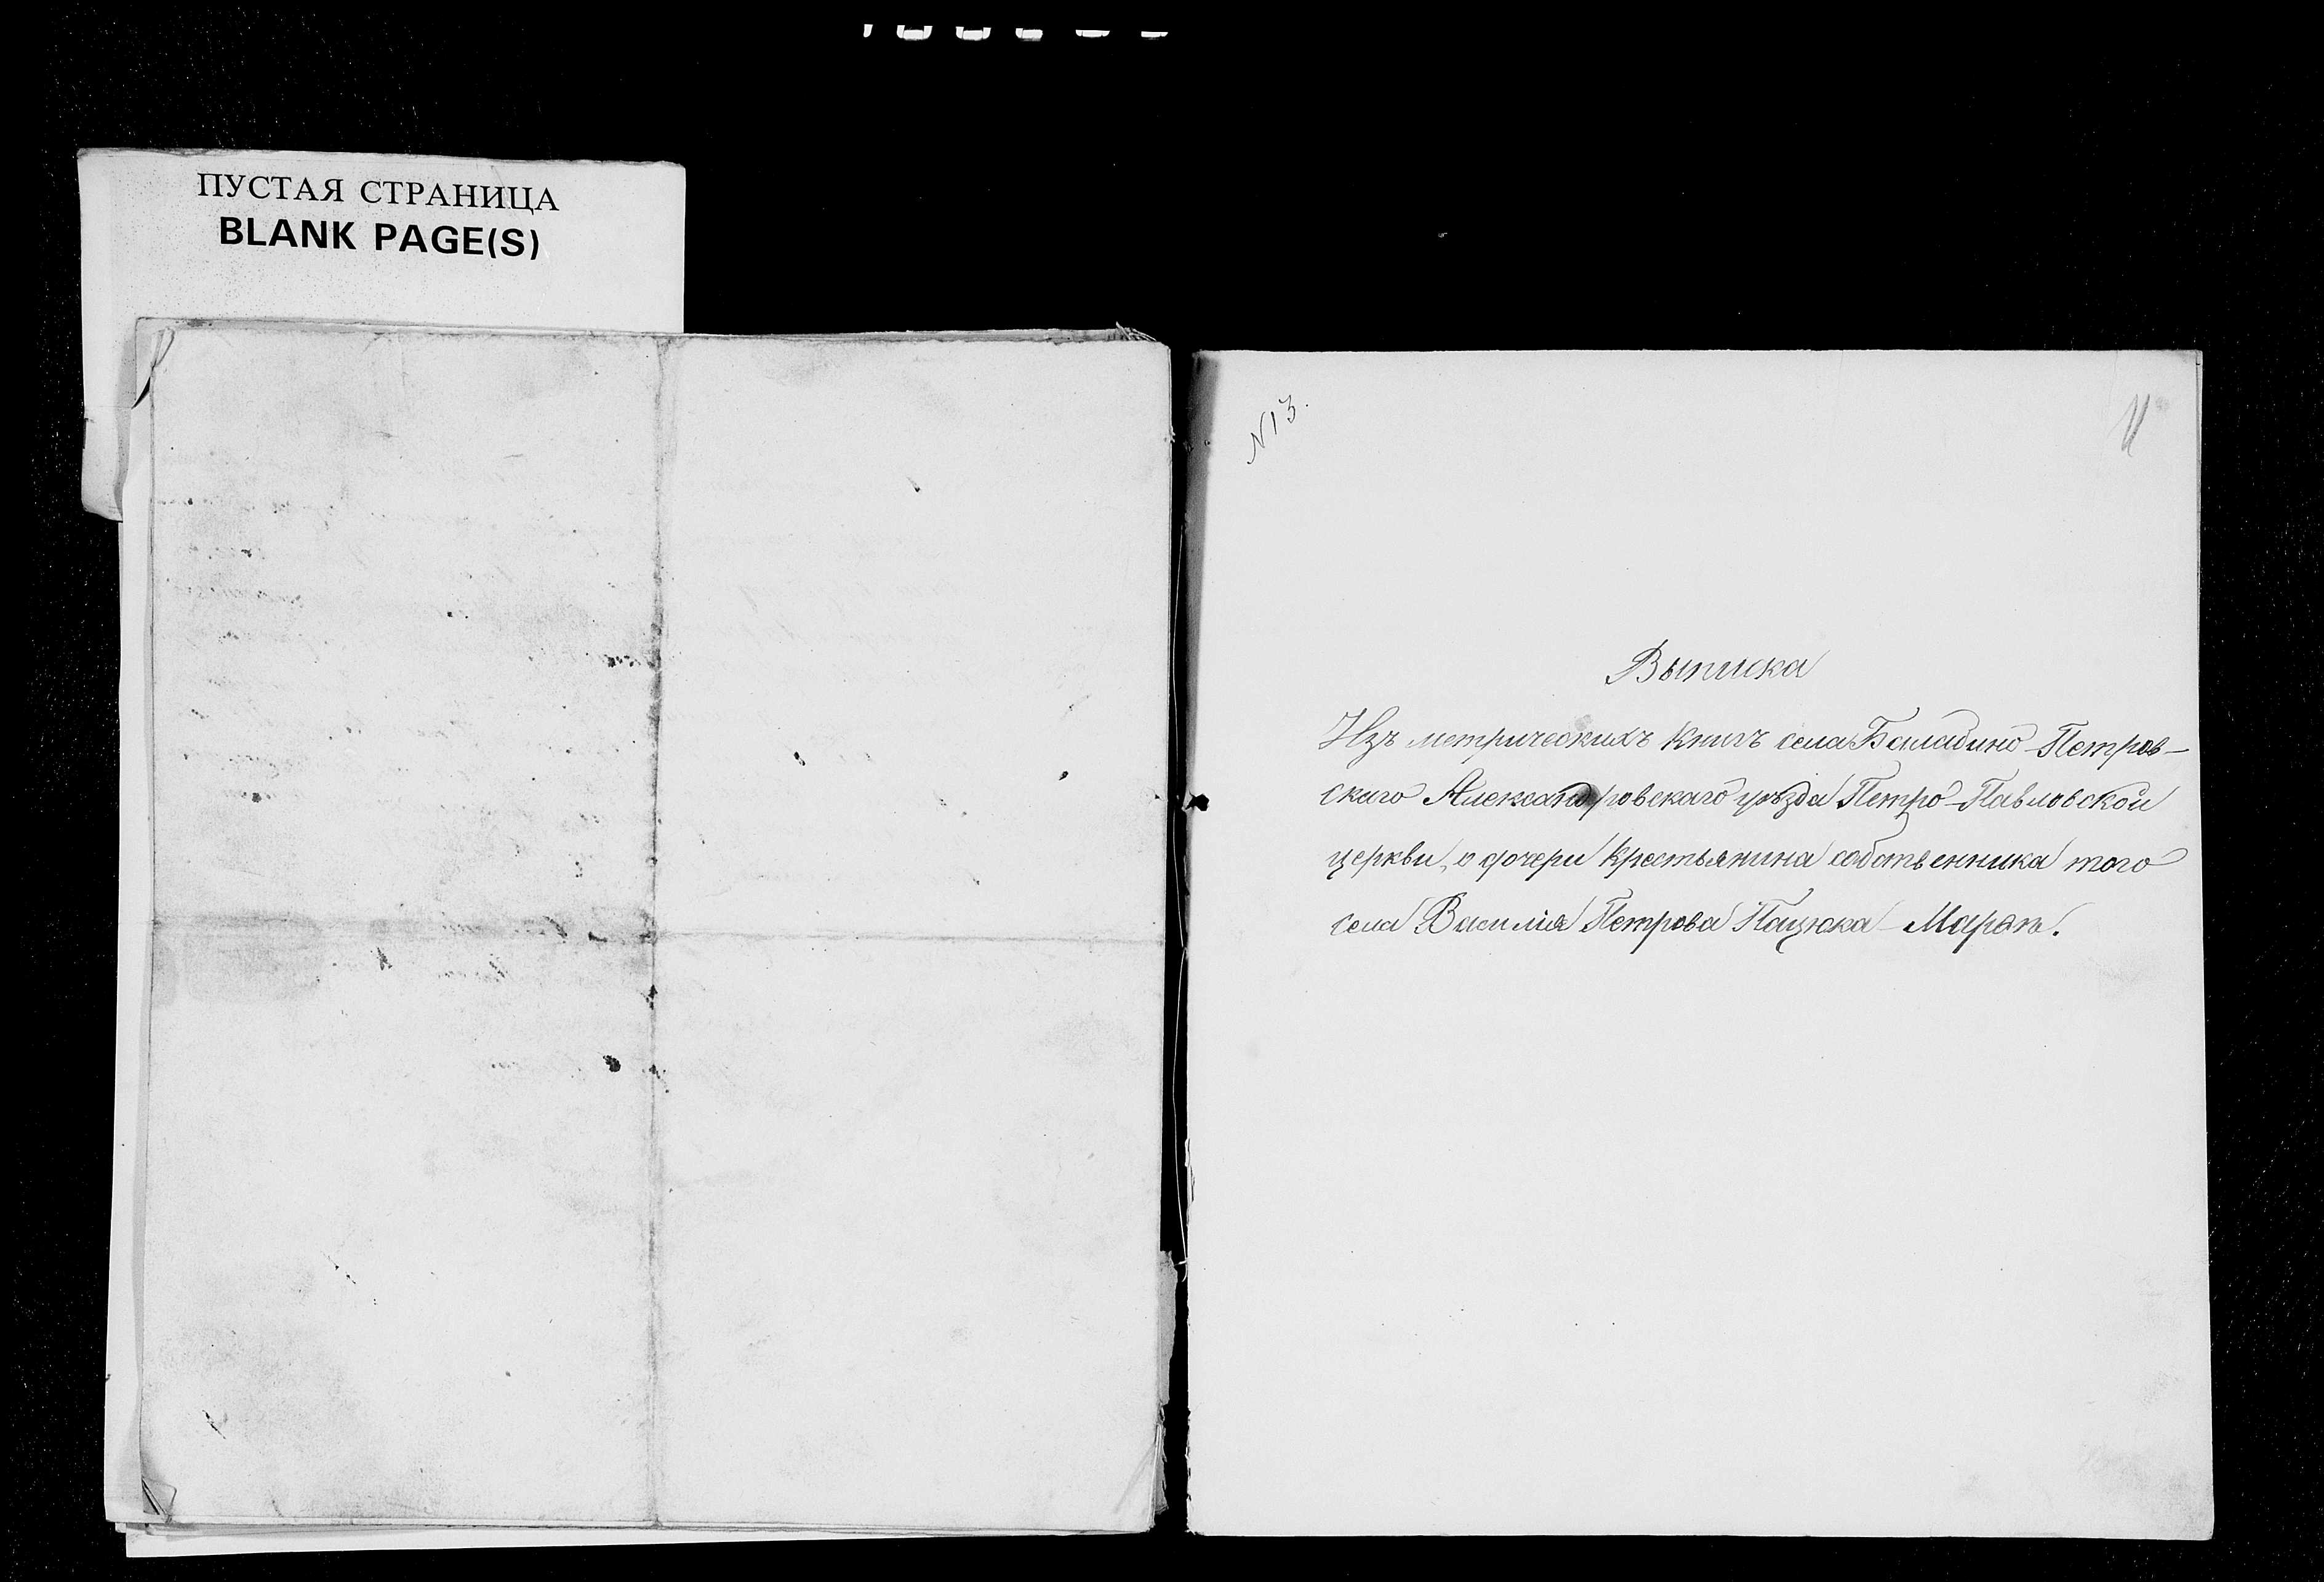 ПУСТАЯ СТРАНИЦА
BLANK PAGE(S)
N13.
11
Выписка
Изъ метрическихъ книгъ села Балабино-Петров-
скаго Александровскаго уѣзда Петро-Павловской
церкви, о дочери крестьянина собственника того
села Василія Петрова Пацюка - Маріи.